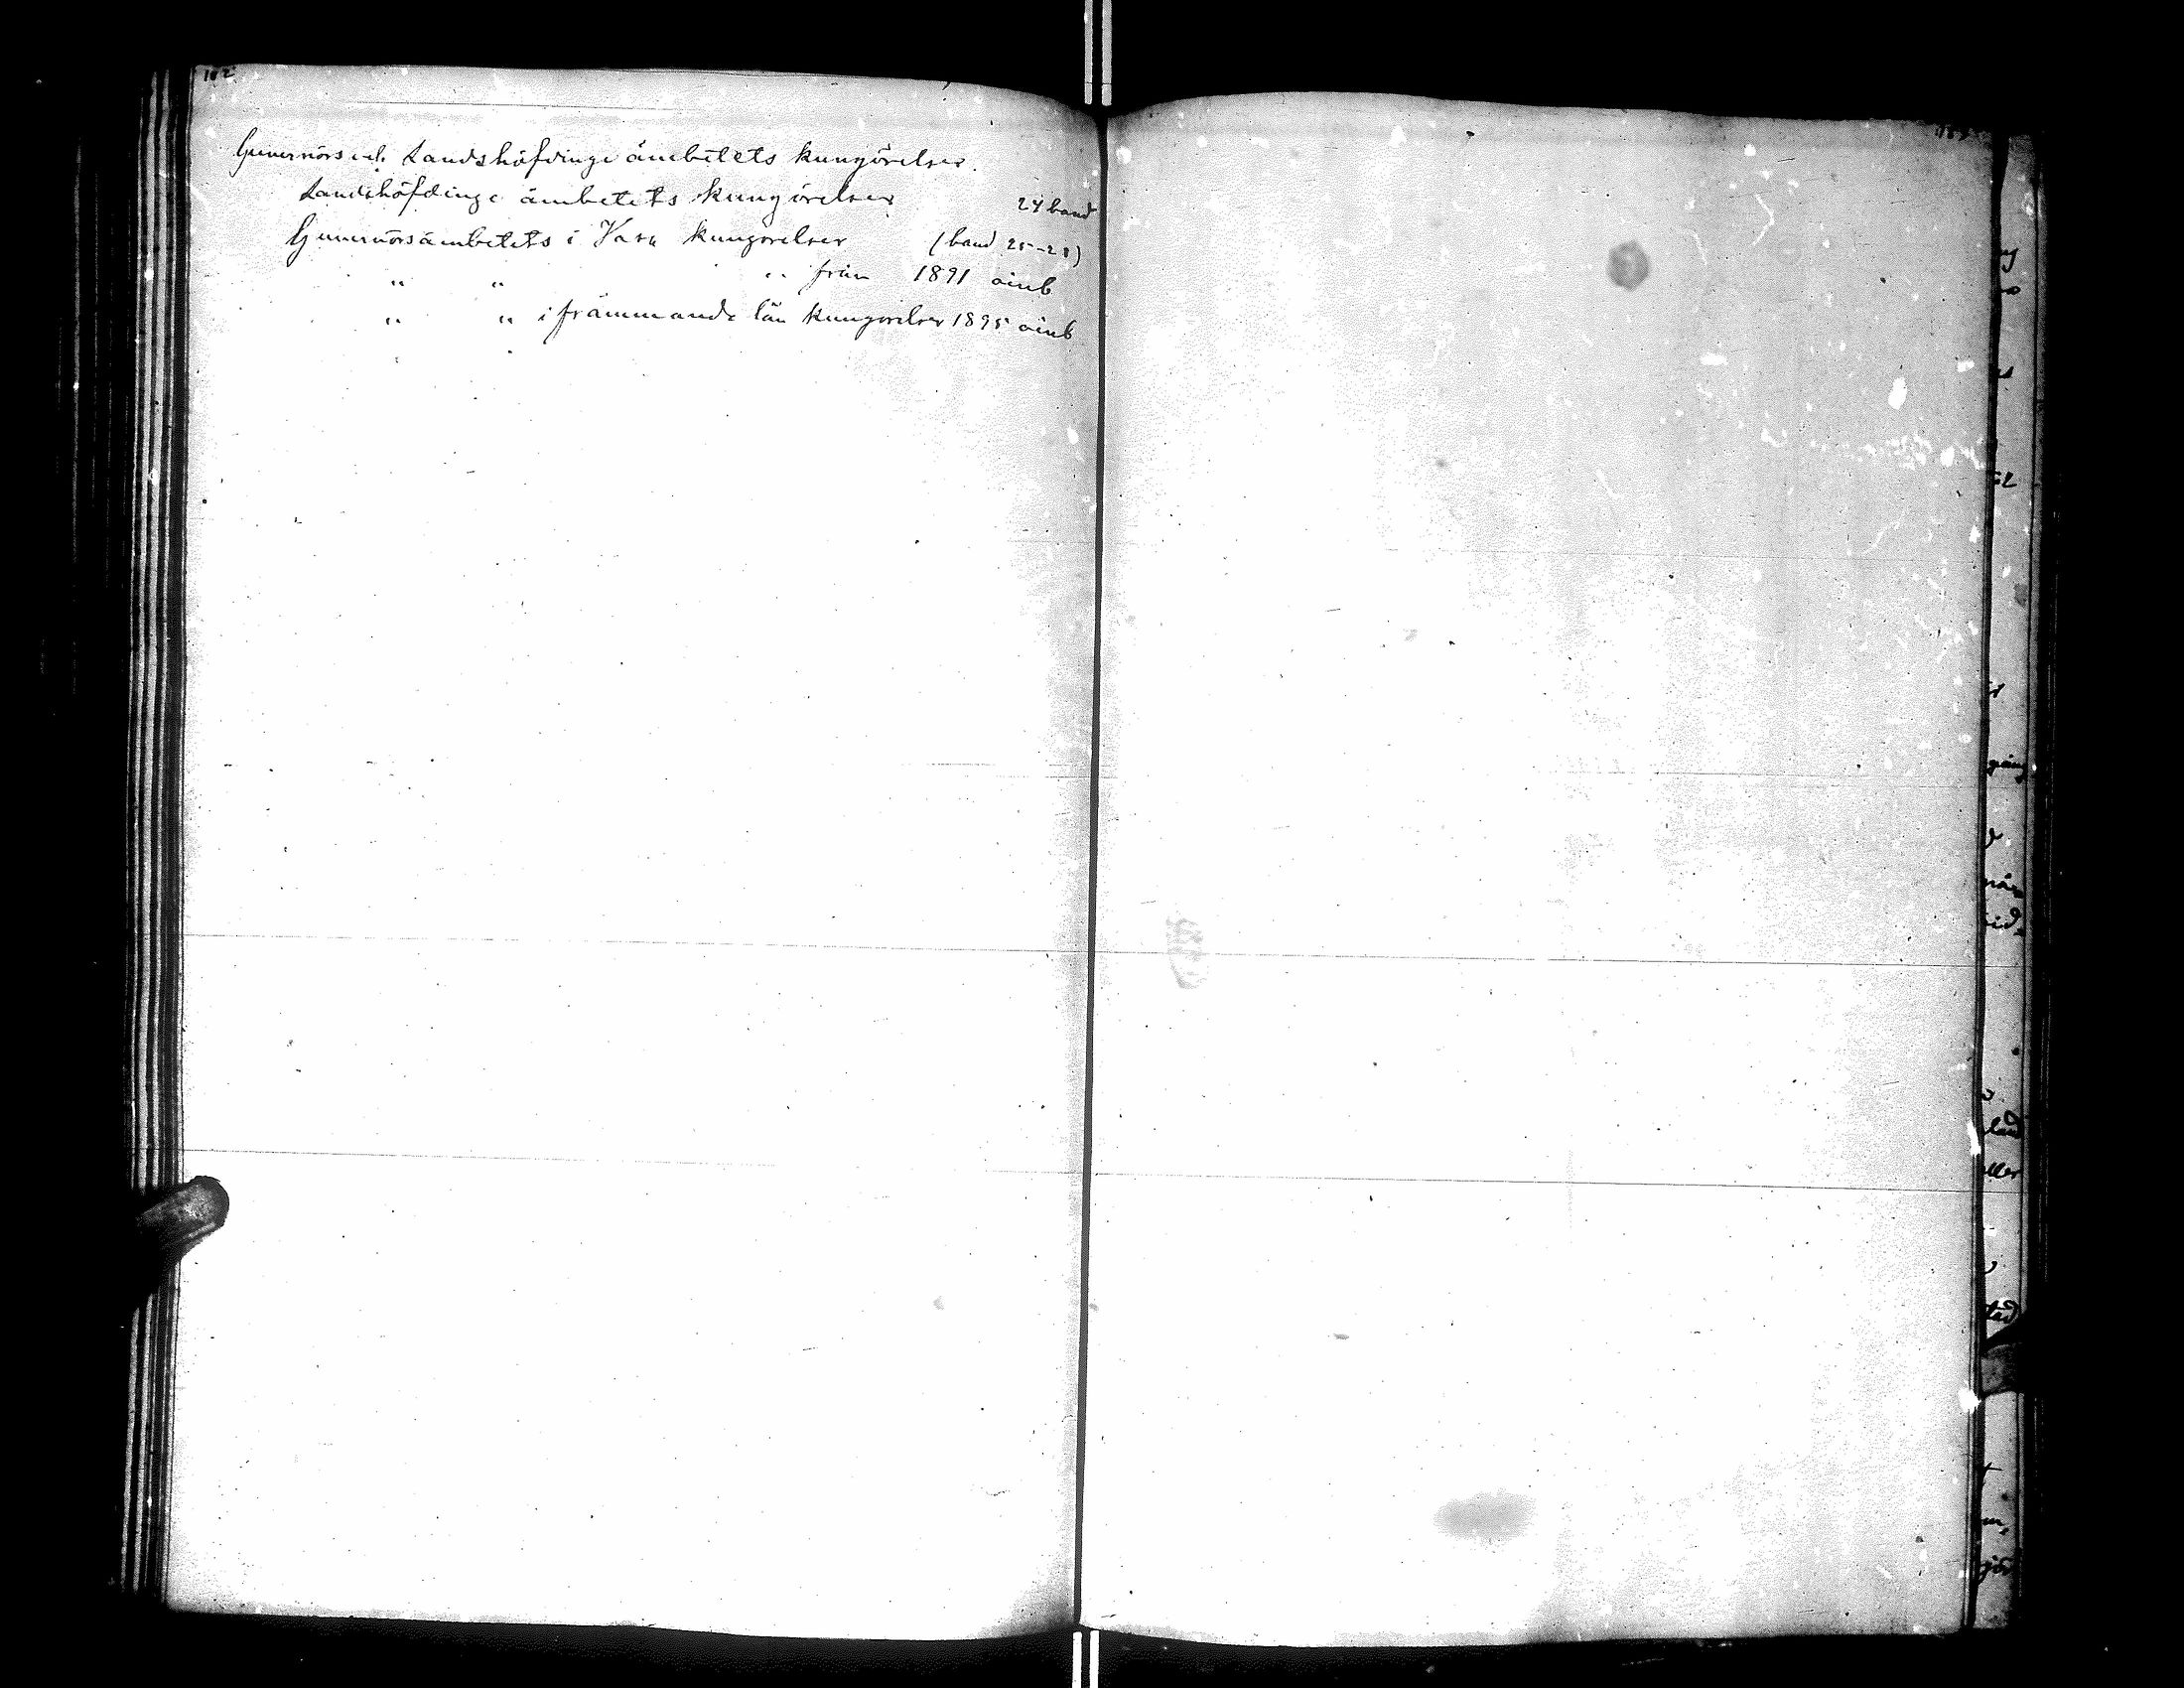 182
Guvernörs och Landshöfdinge ämbetets kungörelser.
Landshöfdinge ämbetets kungörelser 24 band
Guvernörsämbetets i Vasa kungörelser (band 25-28)
" " " från 1891 oinb
" " i främmande län kungörelser 1895 oinb
183